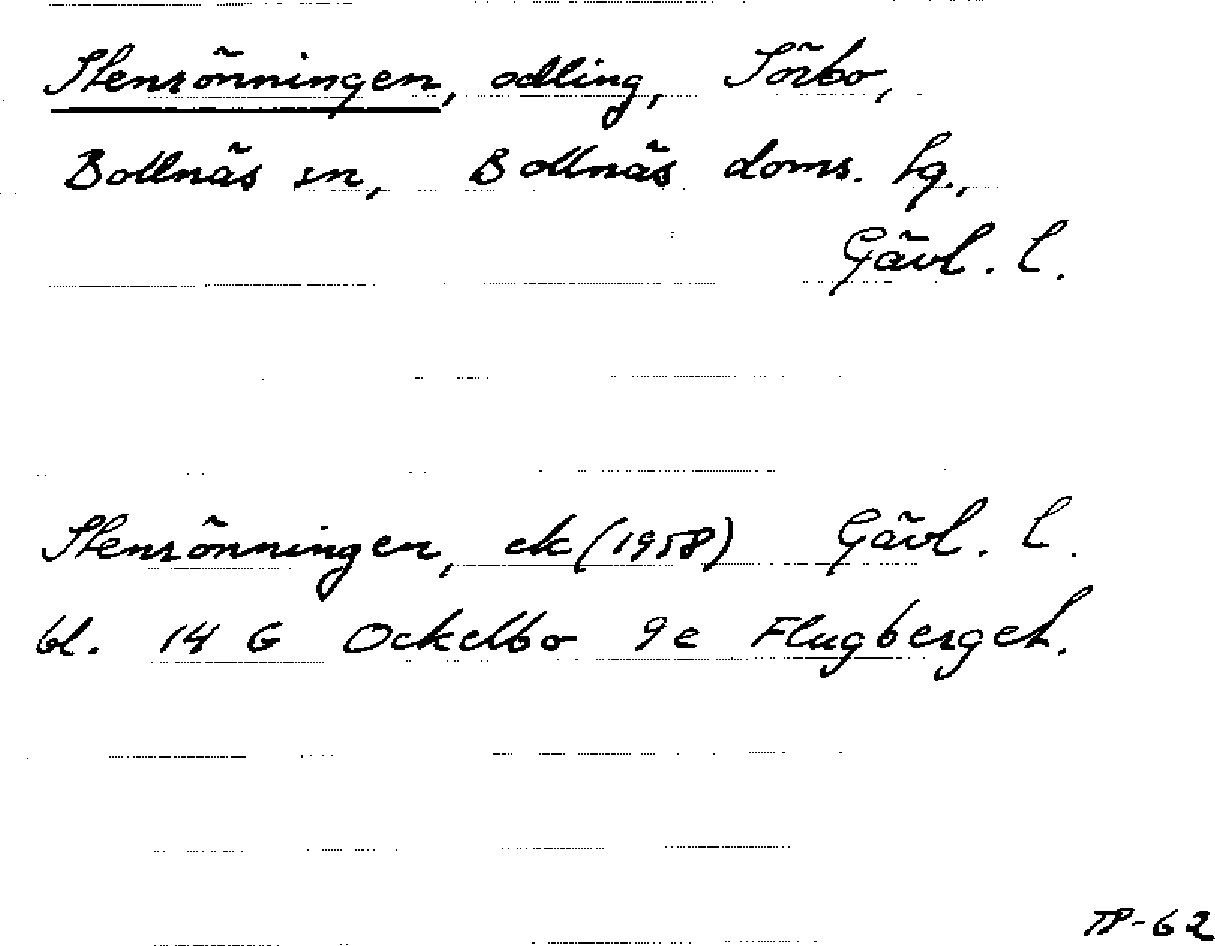 Stensönningen, odling, Sörbo,
Bollnäs sn, Bollnäs doms. fg.,
Gävl. l.
Stensönningen, ek (1958) Gävl. l.
bl. 14 G Ockelbo 9e Flugberget.
TP-62